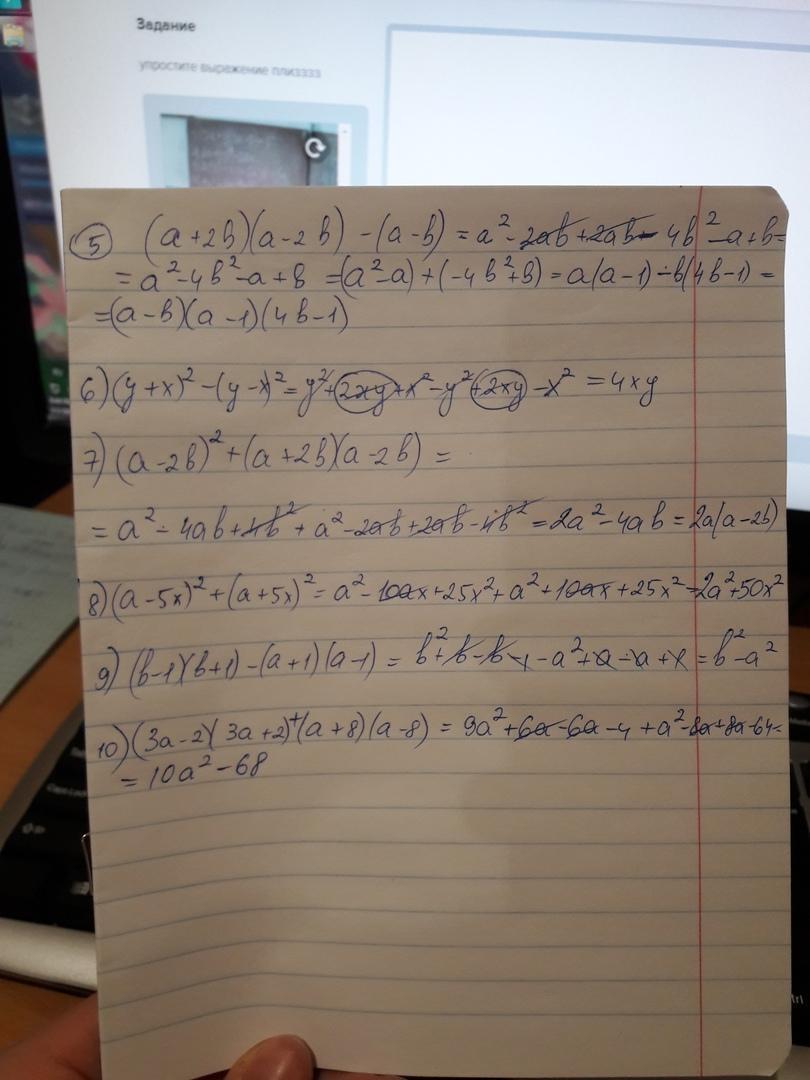 Задание
упростите выражение плизззз
5 (a+2b)(a-2b) -(a-b) = a² - 2ab + 2ab - 4b² - a + b =
= a² - 4b² - a + b = (a² - a) + (-4b² + b) = a(a-1) - b(4b-1) =
= (a-b)(a-1)(4b-1)
6) (y+x)² - (y-x)² = y² + 2xy + x² - y² + 2xy - x² = 4xy
7) (a-2b)² + (a+2b)(a-2b) =
= a² - 4ab + 4b² + a² - 2ab + 2ab - 4b² = 2a² - 4ab = 2a(a-2b)
8) (a-5x)² + (a+5x)² = a² - 10ax + 25x² + a² + 10ax + 25x² = 2a² + 50x²
9) (b-1)(b+1) - (a+1)(a-1) = b² + b - b - 1 - a² + a - a + 1 = b² - a²
10) (3a-2)(3a+2) + (a+8)(a-8) = 9a² + 6a - 6a - 4 + a² - 8a + 8a - 64 =
= 10a² - 68